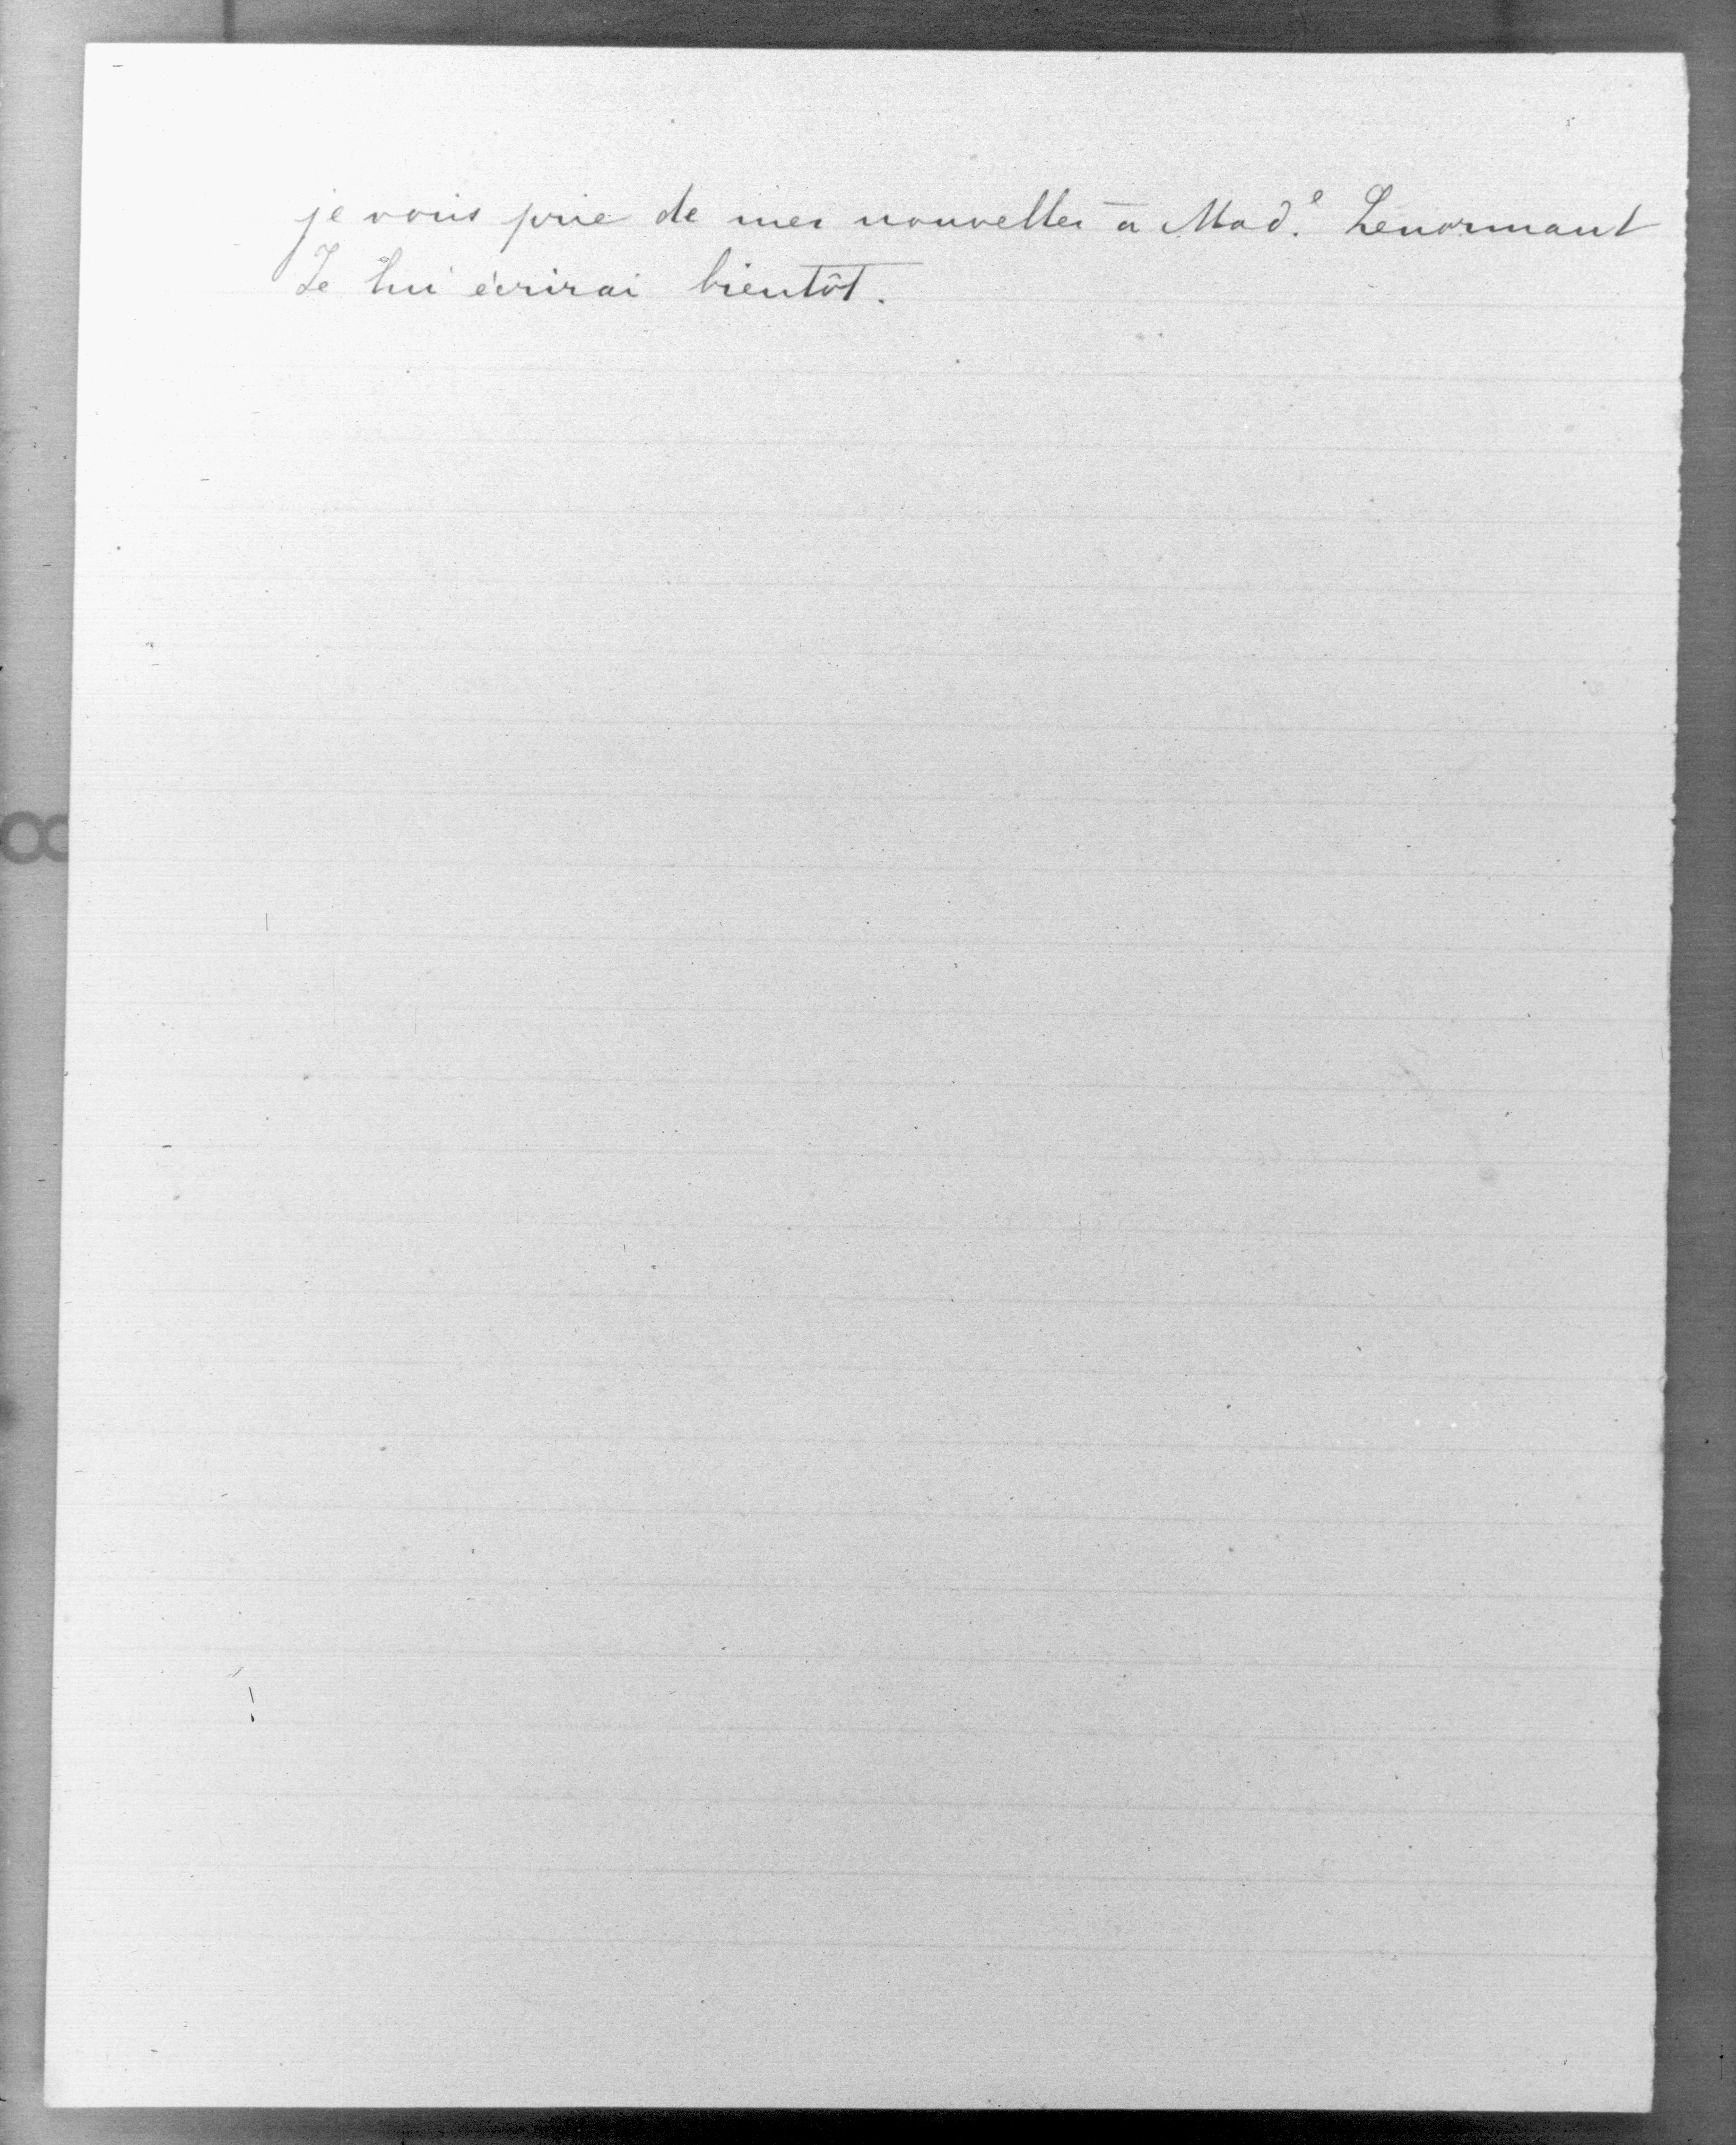 je vous prie de mes nouvelles à Mad.e Lenormant
Je lui écrirai bientôt.